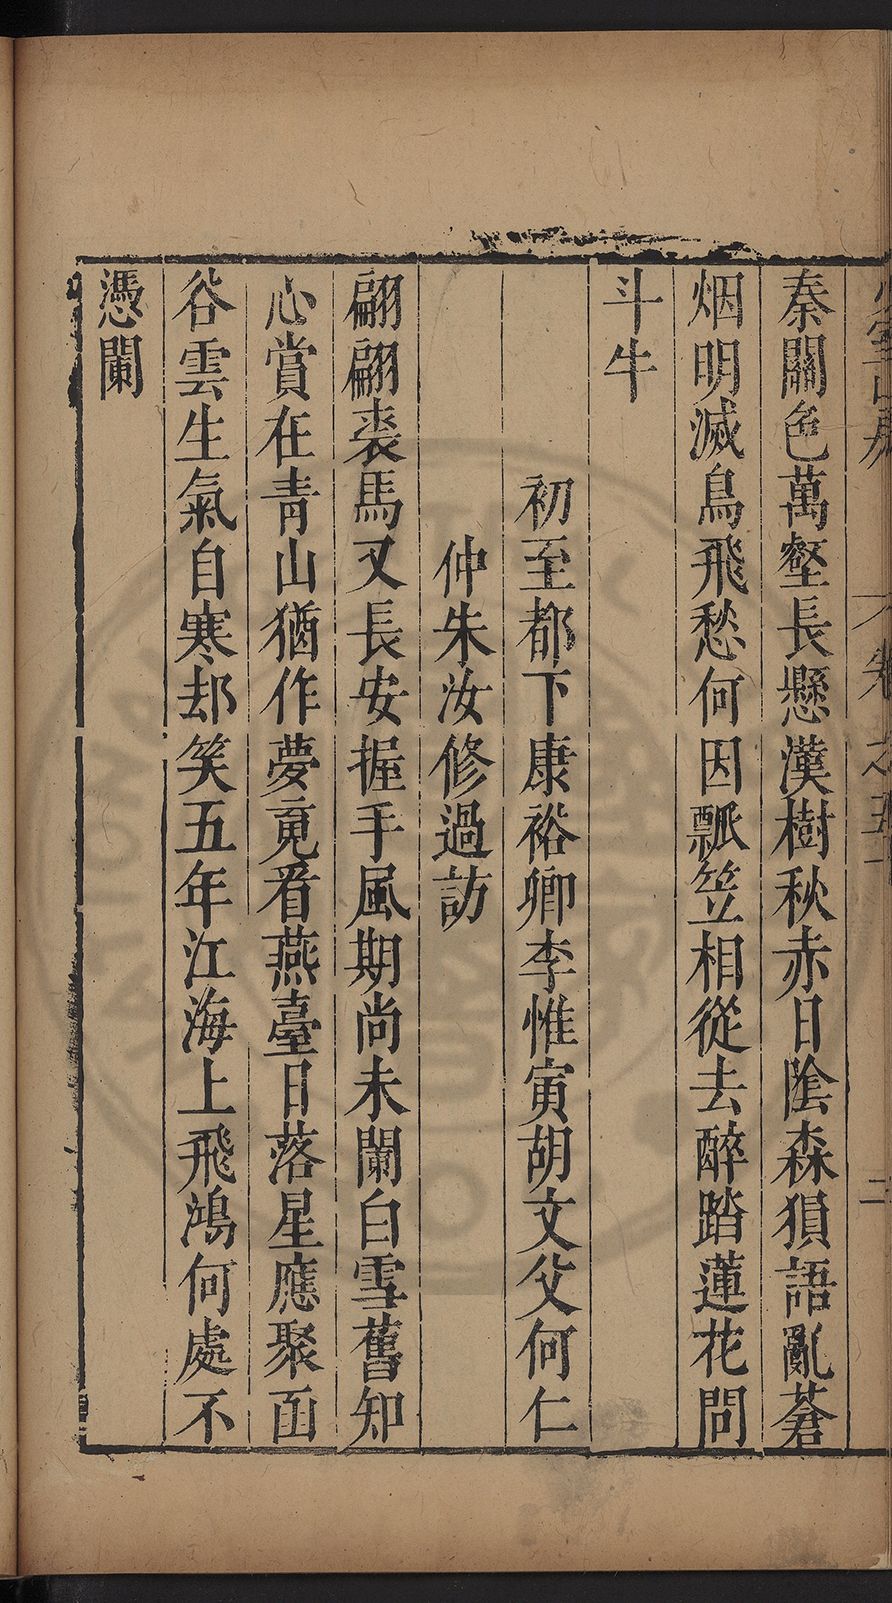 秦關色萬壑長懸漢樹秋赤日陰森猿語亂蒼
烟明滅鳥飛愁何因瓢笠相從去醉踏蓮花問
斗牛
初至都下康裕卿李惟寅胡文父何仁
仲朱汝修過訪
翩翩裘馬又長安握手風期尚未闌白雪舊知
心賞在青山猶作夢竟看燕臺日落星應聚函
谷雲生氣自寒却笑五年江海上飛鴻何處不
憑闌